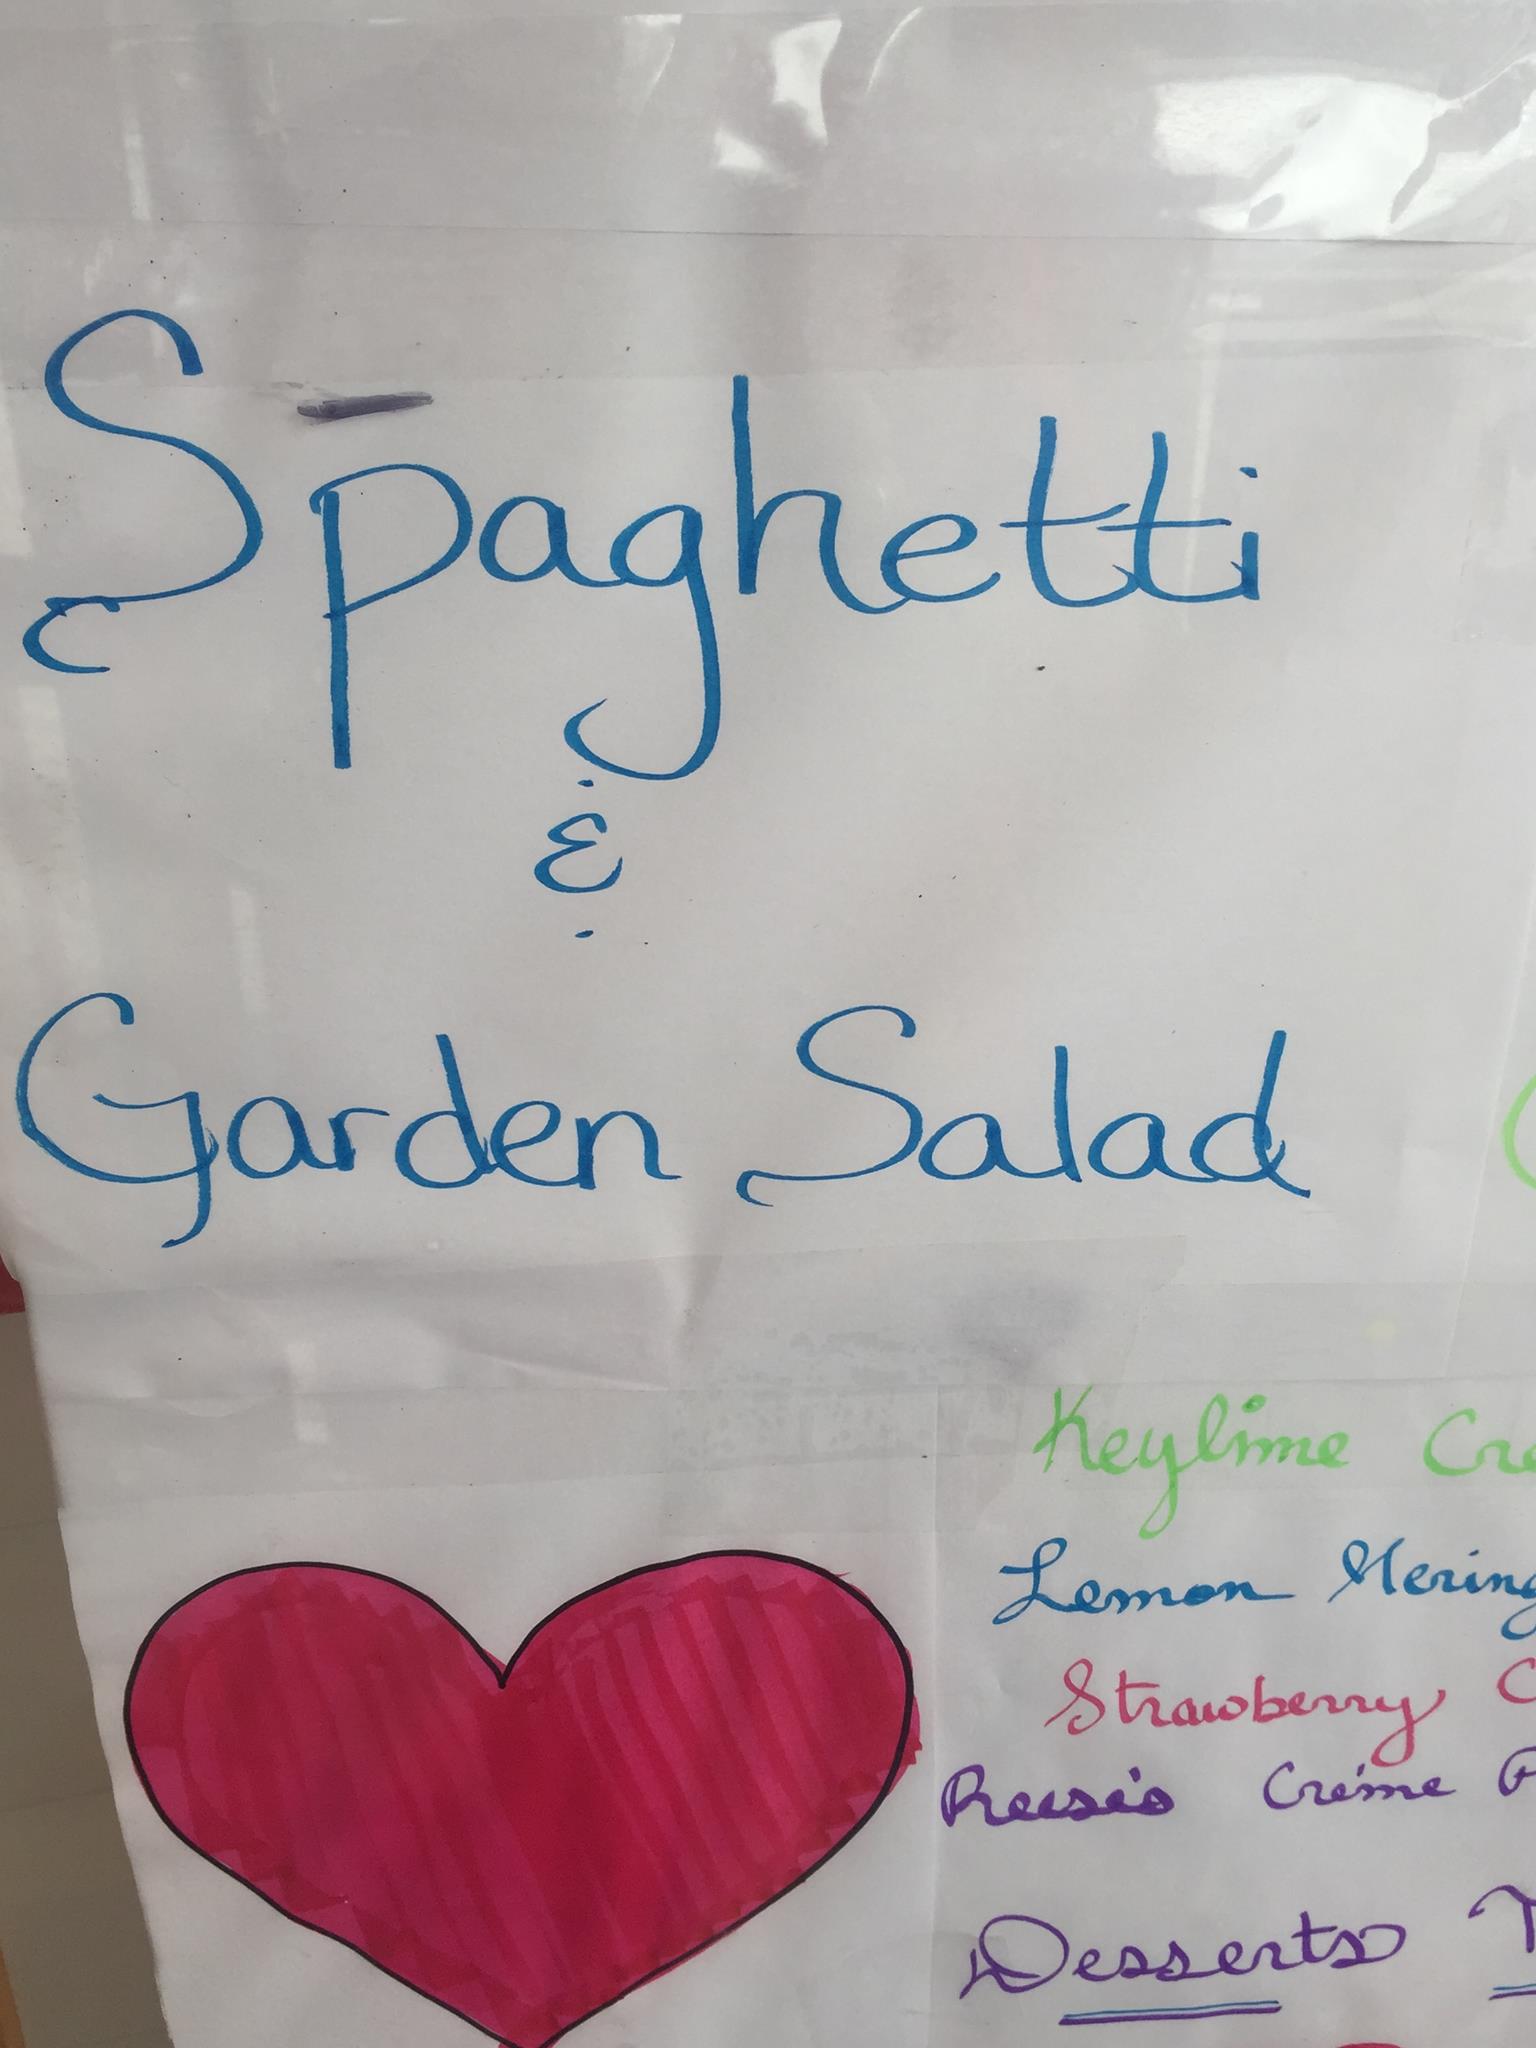 Spaghetti
&
Garden Salad
Keylime
Lemon
Strawberry
Reese's Créme
Desserts